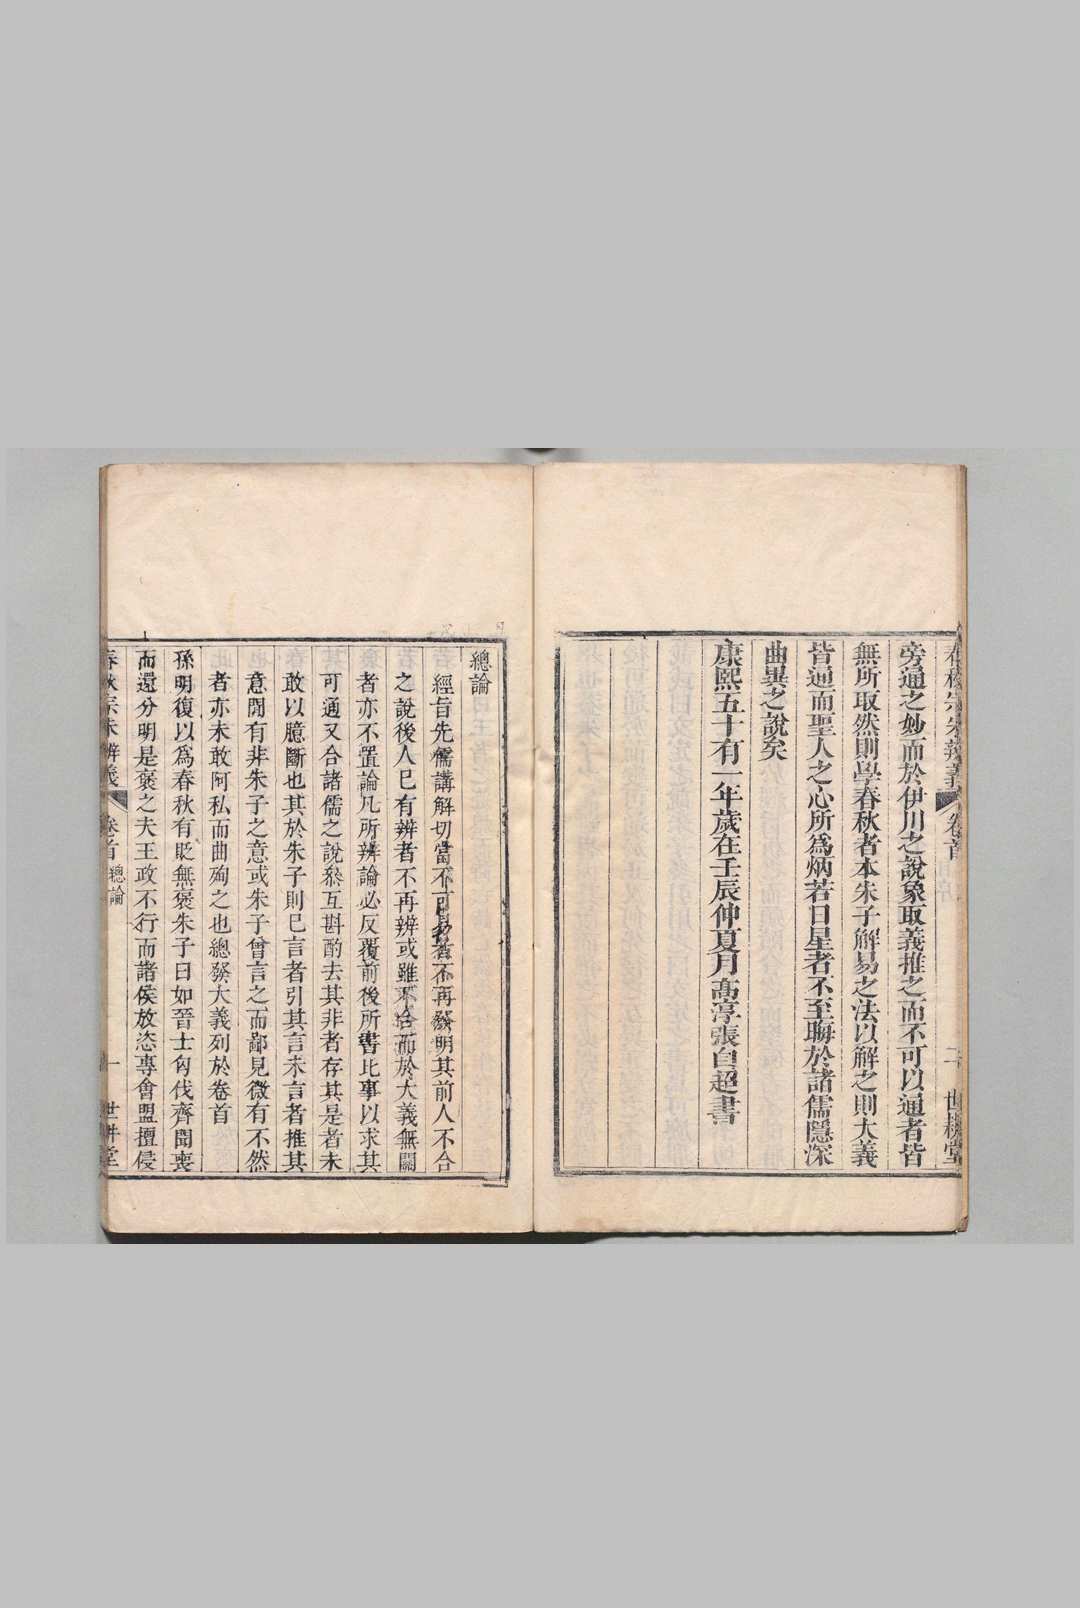 春秋宗朱辨義 卷首 自序 二 世耕堂
旁通之妙而於伊川之說象取義推之而不可以通者皆
無所取然則學春秋者本朱子解易之法以解之則大義
皆通而聖人之心所為炳若日星者不至晦於諸儒隱深
曲異之說矣
康熙五十有一年歲在壬辰仲夏月高淳張自超書
總論
經旨先儒講解切當不可易者不再發明其前人不合
之說後人已有辨者不再辨或雖不合而於大義無關
者亦不置論凡所辨論必反覆前後所書比事以求其
可通又合諸儒之說叅互斟酌去其非者存其是者未
敢以臆斷也其於朱子則已言者引其言未言者推其
意間有非朱子之意或朱子曾言之而鄙見微有不然
者亦未敢阿私而曲殉之也總發大義列於卷首
孫明復以為春秋有貶無褒朱子曰如晉士匄伐齊聞喪
而還分明是褒之夫王政不行而諸侯放恣專會盟擅侵
春秋宗朱辨義 卷首 總論 一 世耕堂